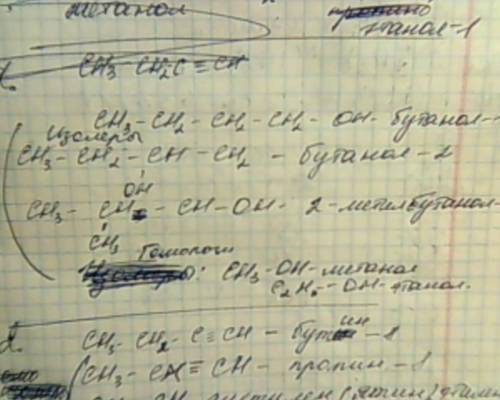 метанол
этанол-1
1. CH₃ CH₂C ≡ CH
CH₃ - CH₂ - CH₂ - CH₂ - OH - бутанол-
Изомеры
CH₃ - CH₂ - CH - CH₂ - бутанол-2
OH
CH₃ - CH - CH - OH - 2-метилбутанол-
CH₃
Гомологи
: CH₃ - OH - метанол
C₂H₅ - OH - этанол.
2. CH₃ - CH₂ - C ≡ CH - бутин-1
CH₃ - CH ≡ CH - пропин-1